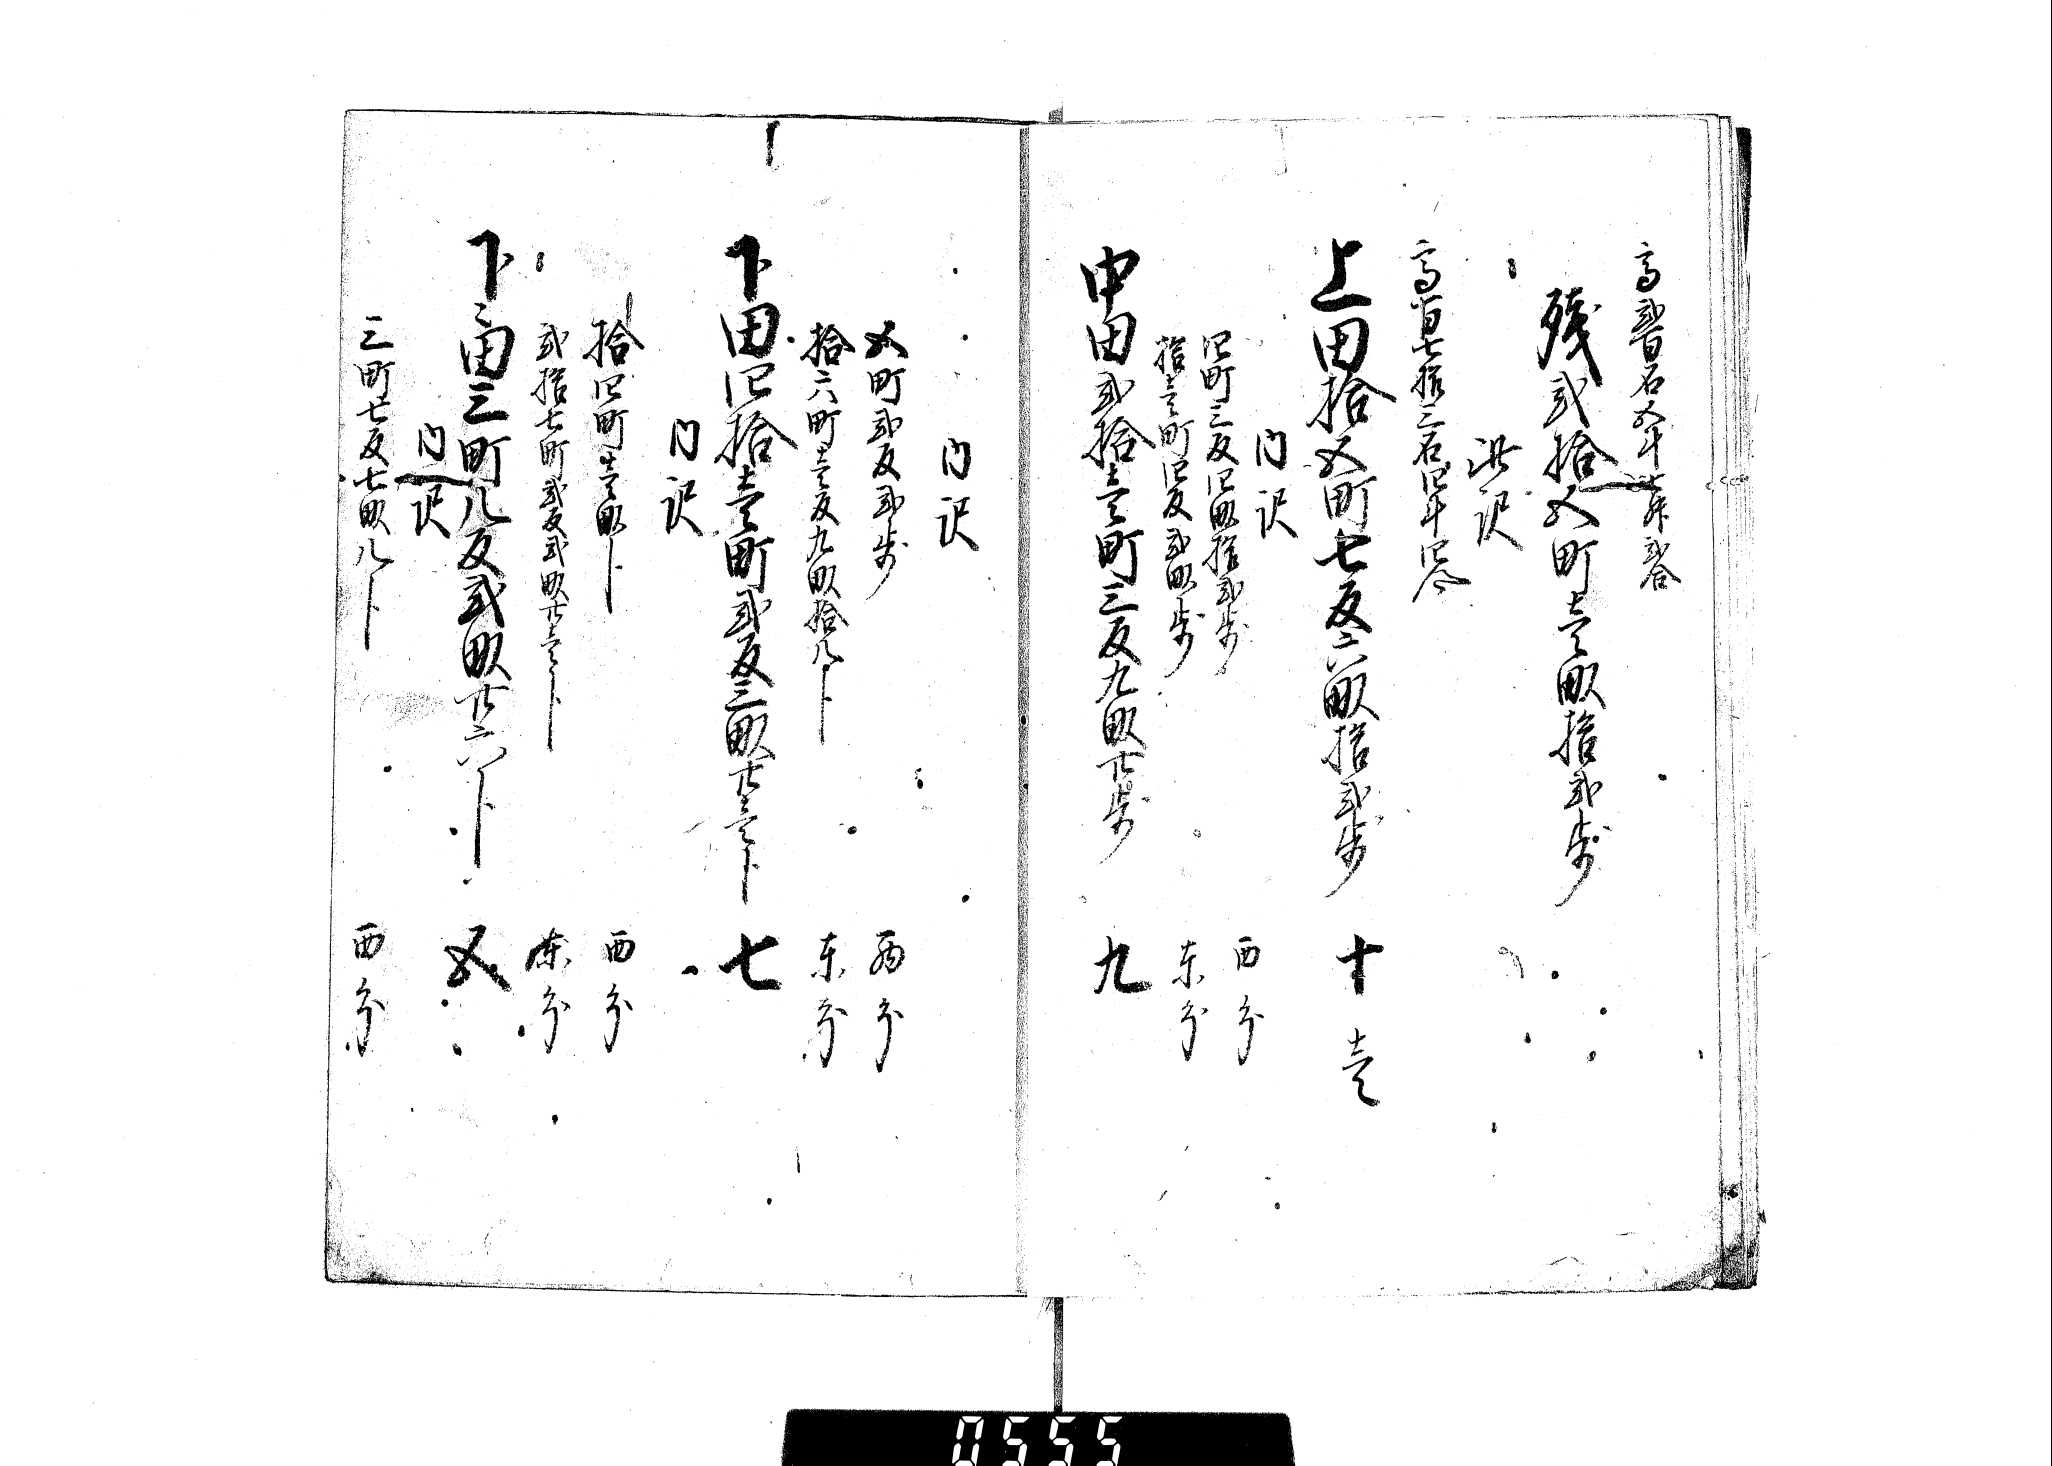 高弐百石五斗七升弐合
残弐拾五町壱畝拾弐歩
此訳
高百七拾三石四斗四合
上田拾五町七反六畝拾弐歩 十壱
内訳
四町三反四畝拾弐歩 西分
拾壱町四反弐畝歩 東分
中田弐拾壱町三反九畝廿歩 九
内訳
五町弐反弐歩 西分
拾六町壱反九畝拾八歩 東分
下田四拾壱町弐反三畝廿壱歩 七
内訳
拾四町壱畝歩 西分
弐拾七町弐反弐畝廿壱歩 東分
下々田三町八反弐畝廿六歩 五
内訳
三町七反七畝八歩 西分
0555